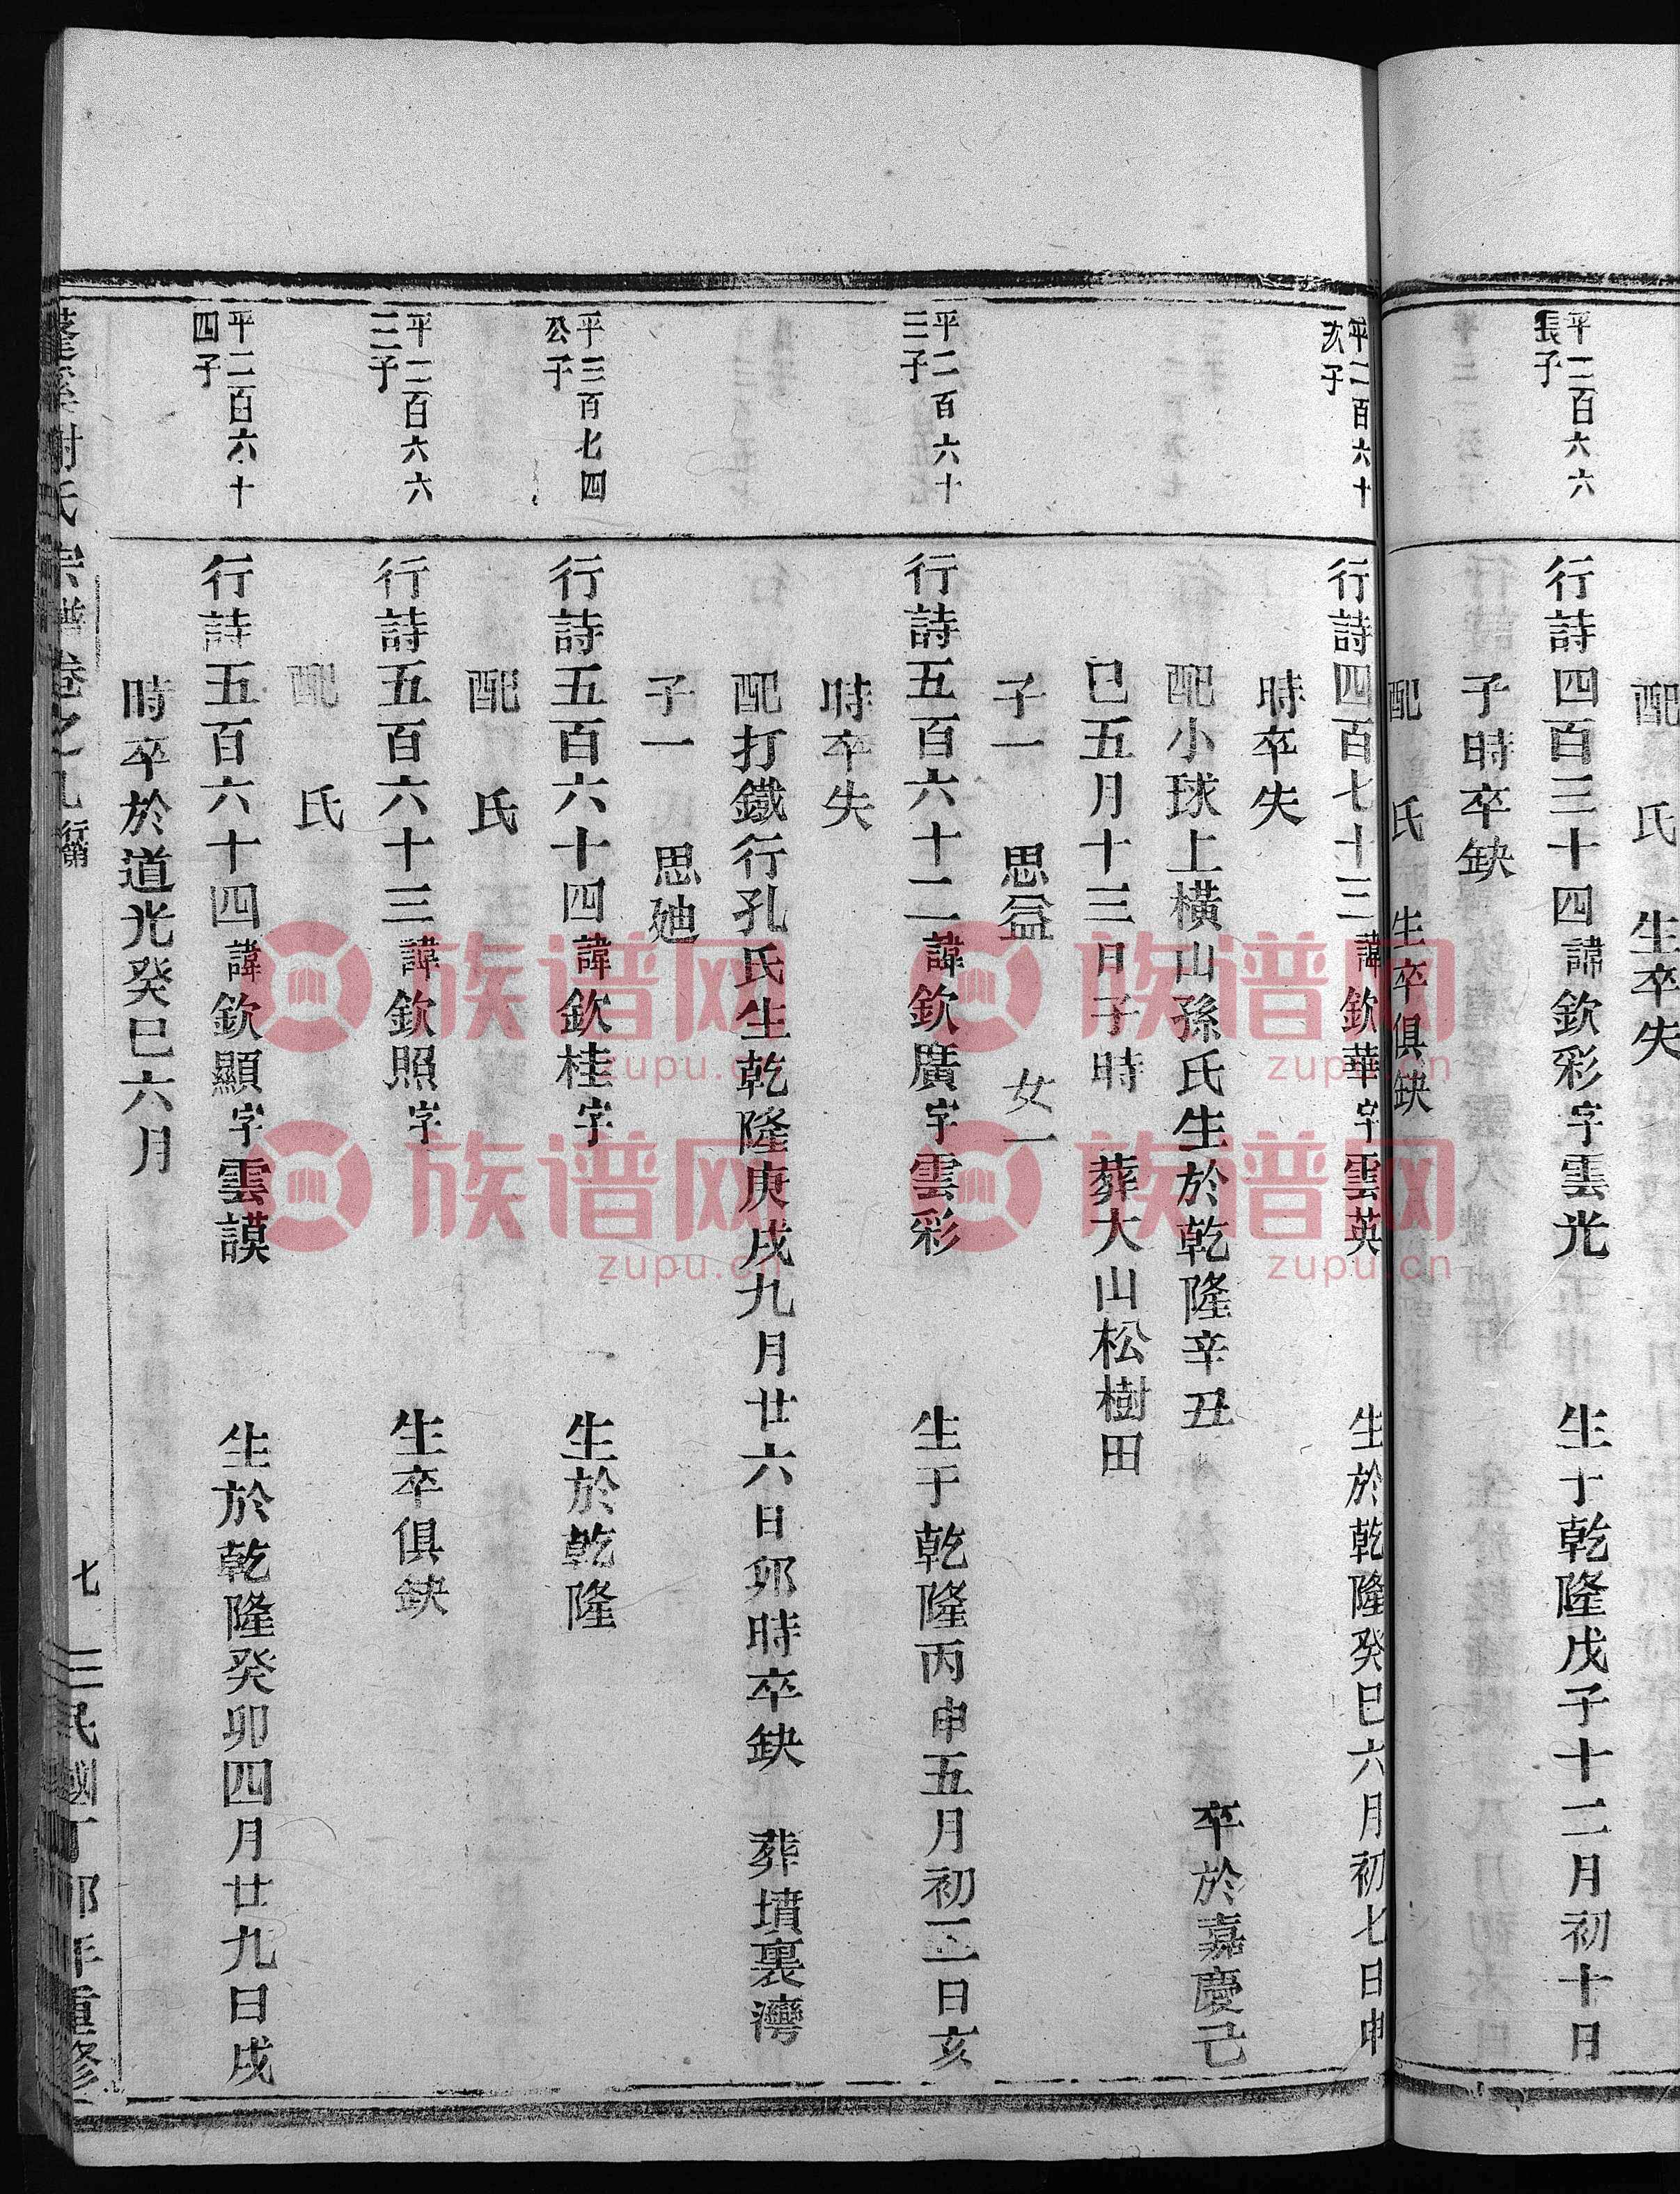 配　氏　生卒失
平二百六六
長子
行詩四百三十四諱欽彩字雲光　生于乾隆戊子十二月初十日
子時卒缺
配　氏　生卒俱缺
平二百六十
次子
行詩四百七十三諱欽華字雲英　生於乾隆癸巳六月初七日申
時卒失
配小球上橫山孫氏生於乾隆辛丑　卒於嘉慶己
巳五月十三日子時　葬大山松樹田
子一　思益　女一
平二百六十
三子
行詩五百六十二諱欽廣字雲彩　生于乾隆丙申五月初三日亥
時卒失
配打鐵行孔氏生乾隆庚戌九月廿六日卯時卒缺　葬墳裏灣
子一　思廸
平三百七四
公子
行詩五百六十四諱欽桂字　生於乾隆
配　氏
平二百六六
三子
行詩五百六十三諱欽照字　生卒俱缺
配　氏
平二百六十
四子
行詩五百六十四諱欽顯字雲謨　生於乾隆癸卯四月廿九日戌
時卒於道光癸巳六月
謝氏宗譜　卷之九　行第　七　民國丁卯年重修
族谱网
zupu.cn
族谱网
zupu.cn
族谱网
zupu.cn
族谱网
zupu.cn